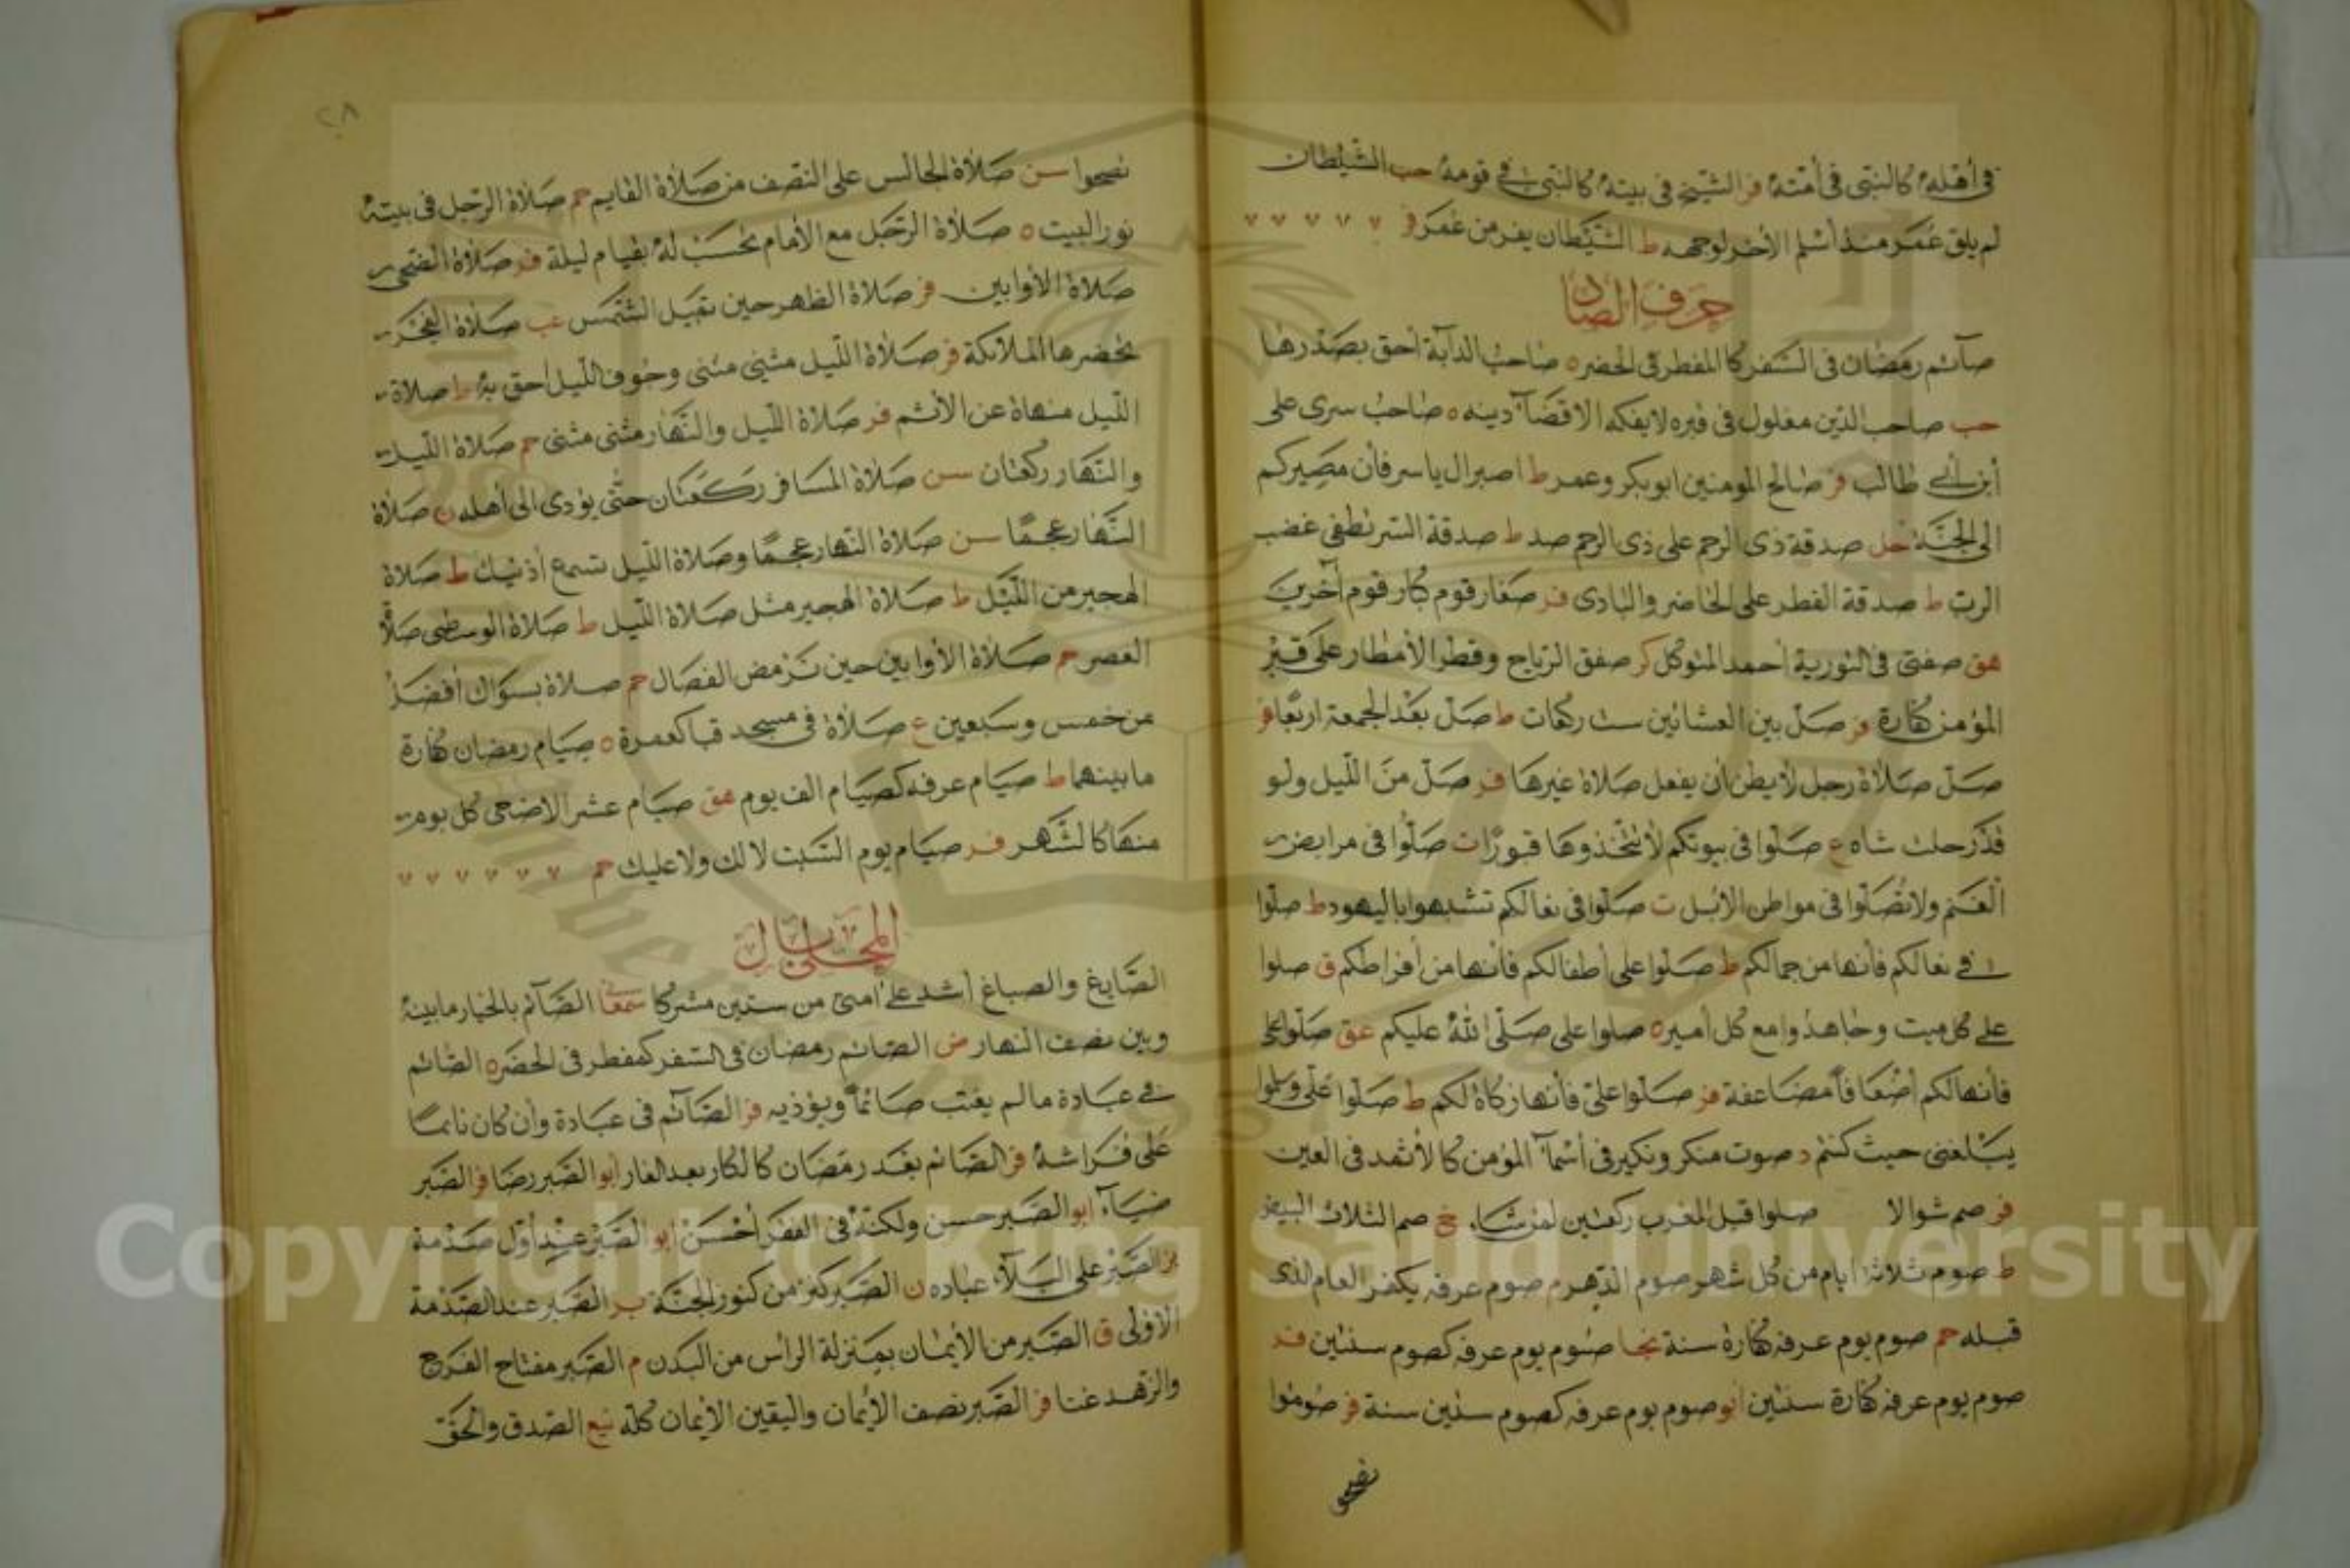 في أهله كالنبي في أمته فر الشيخ في بيته كالنبي في قومه حب الشيطان
لم يلق عمر منذ أسلم الأخر لوجهه ط الشيطان يفر من عمر فر
حرف الصاد
صآئم رمضان في السفر كالمفطر في الحضر ه صاحب الدآبة أحق بصدرها
حب صاحب الدين مغلول في قبره لا يفكه الا قضآء دينه ه صاحب سرى على
أبن أبي طالب فر صالح المومنين ابو بكر وعمر ط اصبر ال ياسر فأن مصيركم
الى الجنة حل صدقة ذى الرحم على ذى الرحم صد ط صدقة السر تطفى غضب
الرب ط صدقة الفطر على الحاضر والبادى فر صغار قوم كبار قوم آخرين
هق صفتى في التورية أحمد المتوكل كر صفق الرياح وقطر الأمطار على قبر
المؤمن كفارة فر صل بين العشائين ست ركعات ط صل بعد الجمعة اربعا فر
صل صلاة رجل لا يظن أن يفعل صلاة غيرها فر صل من الليل ولو
قدر حلب شاه ع صلوا في بيوتكم لا تتخذوها قبورا ت صلوا في مرابض
الغنم ولا تصلوا في مواطن الابل ت صلوا في نعالكم تشبهوا باليهود ط صلوا
في نعالكم فأنها من جمالكم ط صلوا على أطفالكم فأنها من أفراطكم ق صلوا
على كل ميت وجاهدوا مع كل أمير ه صلوا على صلى الله عليكم عق صلوا على
فأنها لكم أضعافا مضاعفة فر صلوا على فأنها زكاة لكم ط صلوا على وسلموا
يبلغني حيث كنتم د صوت منكر ونكير في أسمآء المؤمن كالأثمد في العين
فر صم شوالا صلوا قبل المغرب ركعتين لمن شاء خ صم الثلاث البيض
ط صوم ثلاثة ايام من كل شهر صوم الدهر م صوم عرفه يكفر العام الذى
قبله حم صوم يوم عرفه كفارة سنة نجا صوم يوم عرفه كصوم سنتين فر
صوم يوم عرفه كفارة سنتين أبو صوم يوم عرفه كصوم ستين سنة فر صوموا
نصحوا
٢٨
نصحوا سن صلاة الجالس على النصف من صلاة القايم حم صلاة الرجل في بيته
نور البيت ه صلاة الرجل مع الأمام تحسب له بقيام ليلة فر صلاة الضحى
صلاة الأوابين فر صلاة الظهر حين تميل الشمس عب صلاة الفجر
تحضرها الملائكة فر صلاة الليل مثنى مثنى وجوف الليل احق به ط صلاة
الليل منهاة عن الأثم فر صلاة الليل والنهار مثنى مثنى حم صلاة الليل
والنهار ركعتان سن صلاة المسافر ركعتان حتى يؤدى الى أهله ن صلاة
النهار عجما سن صلاة النهار عجما وصلاة الليل تسمع أذنيك ط صلاة
الهجير من الليل ط صلاة الهجير مثل صلاة الليل ط صلاة الوسطى صلاة
العصر حم صلاة الأوابين حين ترمض الفصال حم صلاة بسواك أفضل
من خمس وسبعين ع صلاة في مسجد قبا كعمرة ه صيام رمضان كفارة
ما بينهما ط صيام عرفه كصيام الف يوم هق صيام عشر الاضحى كل يوم
منها كالشهر فر صيام يوم السبت لا لك ولا عليك حم
المحلى بال
الصايغ والصباغ أشد على أمتى من ستين مشركا سمعا الصآئم بالخيار ما بينه
وبين نصف النهار ض الصائم رمضان في السفر كمفطر في الحضر ه الصائم
في عبادة ما لم يغتب صائما ويؤذيه فر الصآئم في عبادة وأن كان نائما
على فراشه فر الصائم بعد رمضان كالكار بعد الفار أبو الصبر رضا فر الصبر
ضيآء ابو الصبر حسن ولكنه في الفقر أحسن ابو الصبر عند أول صدمة
بز الصبر على البلآء عباده ن الصبر كنز من كنوز الجنة بر الصبر عند الصدمة
الأولى ق الصبر من الأيمان بمنزلة الرأس من البدن م الصبر مفتاح الفرج
والزهد غنا فر الصبر نصف الأيمان واليقين الأيمان كله نيع الصدق والحق